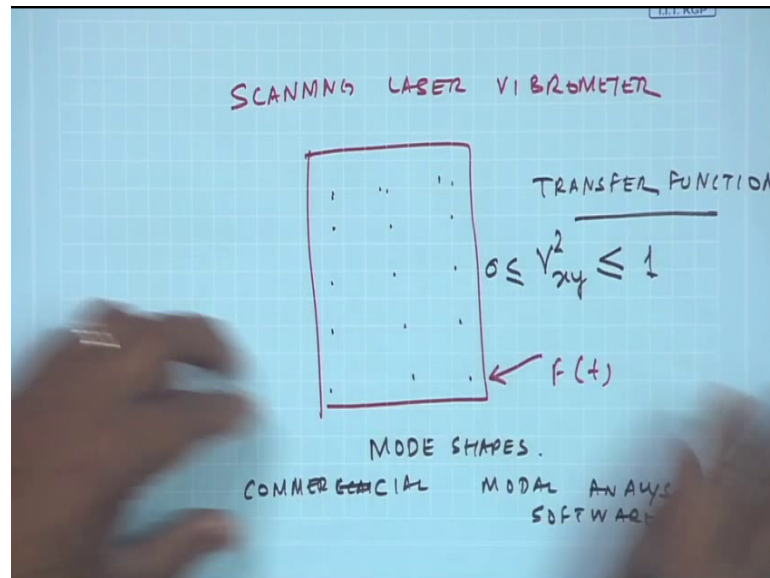 I.I.T. KGP
SCANNING LASER VIBROMETER
TRANSFER FUNCTION
0 ≤ γ²xy ≤ 1
F(t)
MODE SHAPES.
COMMERCIAL MODAL ANALYS
SOFTWARE